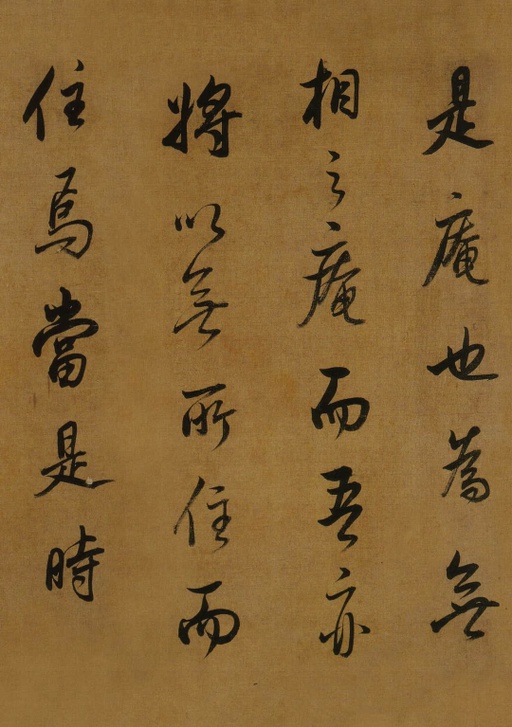 是庵也為無
相之庵而吾亦
將以無所住而
住焉當是時